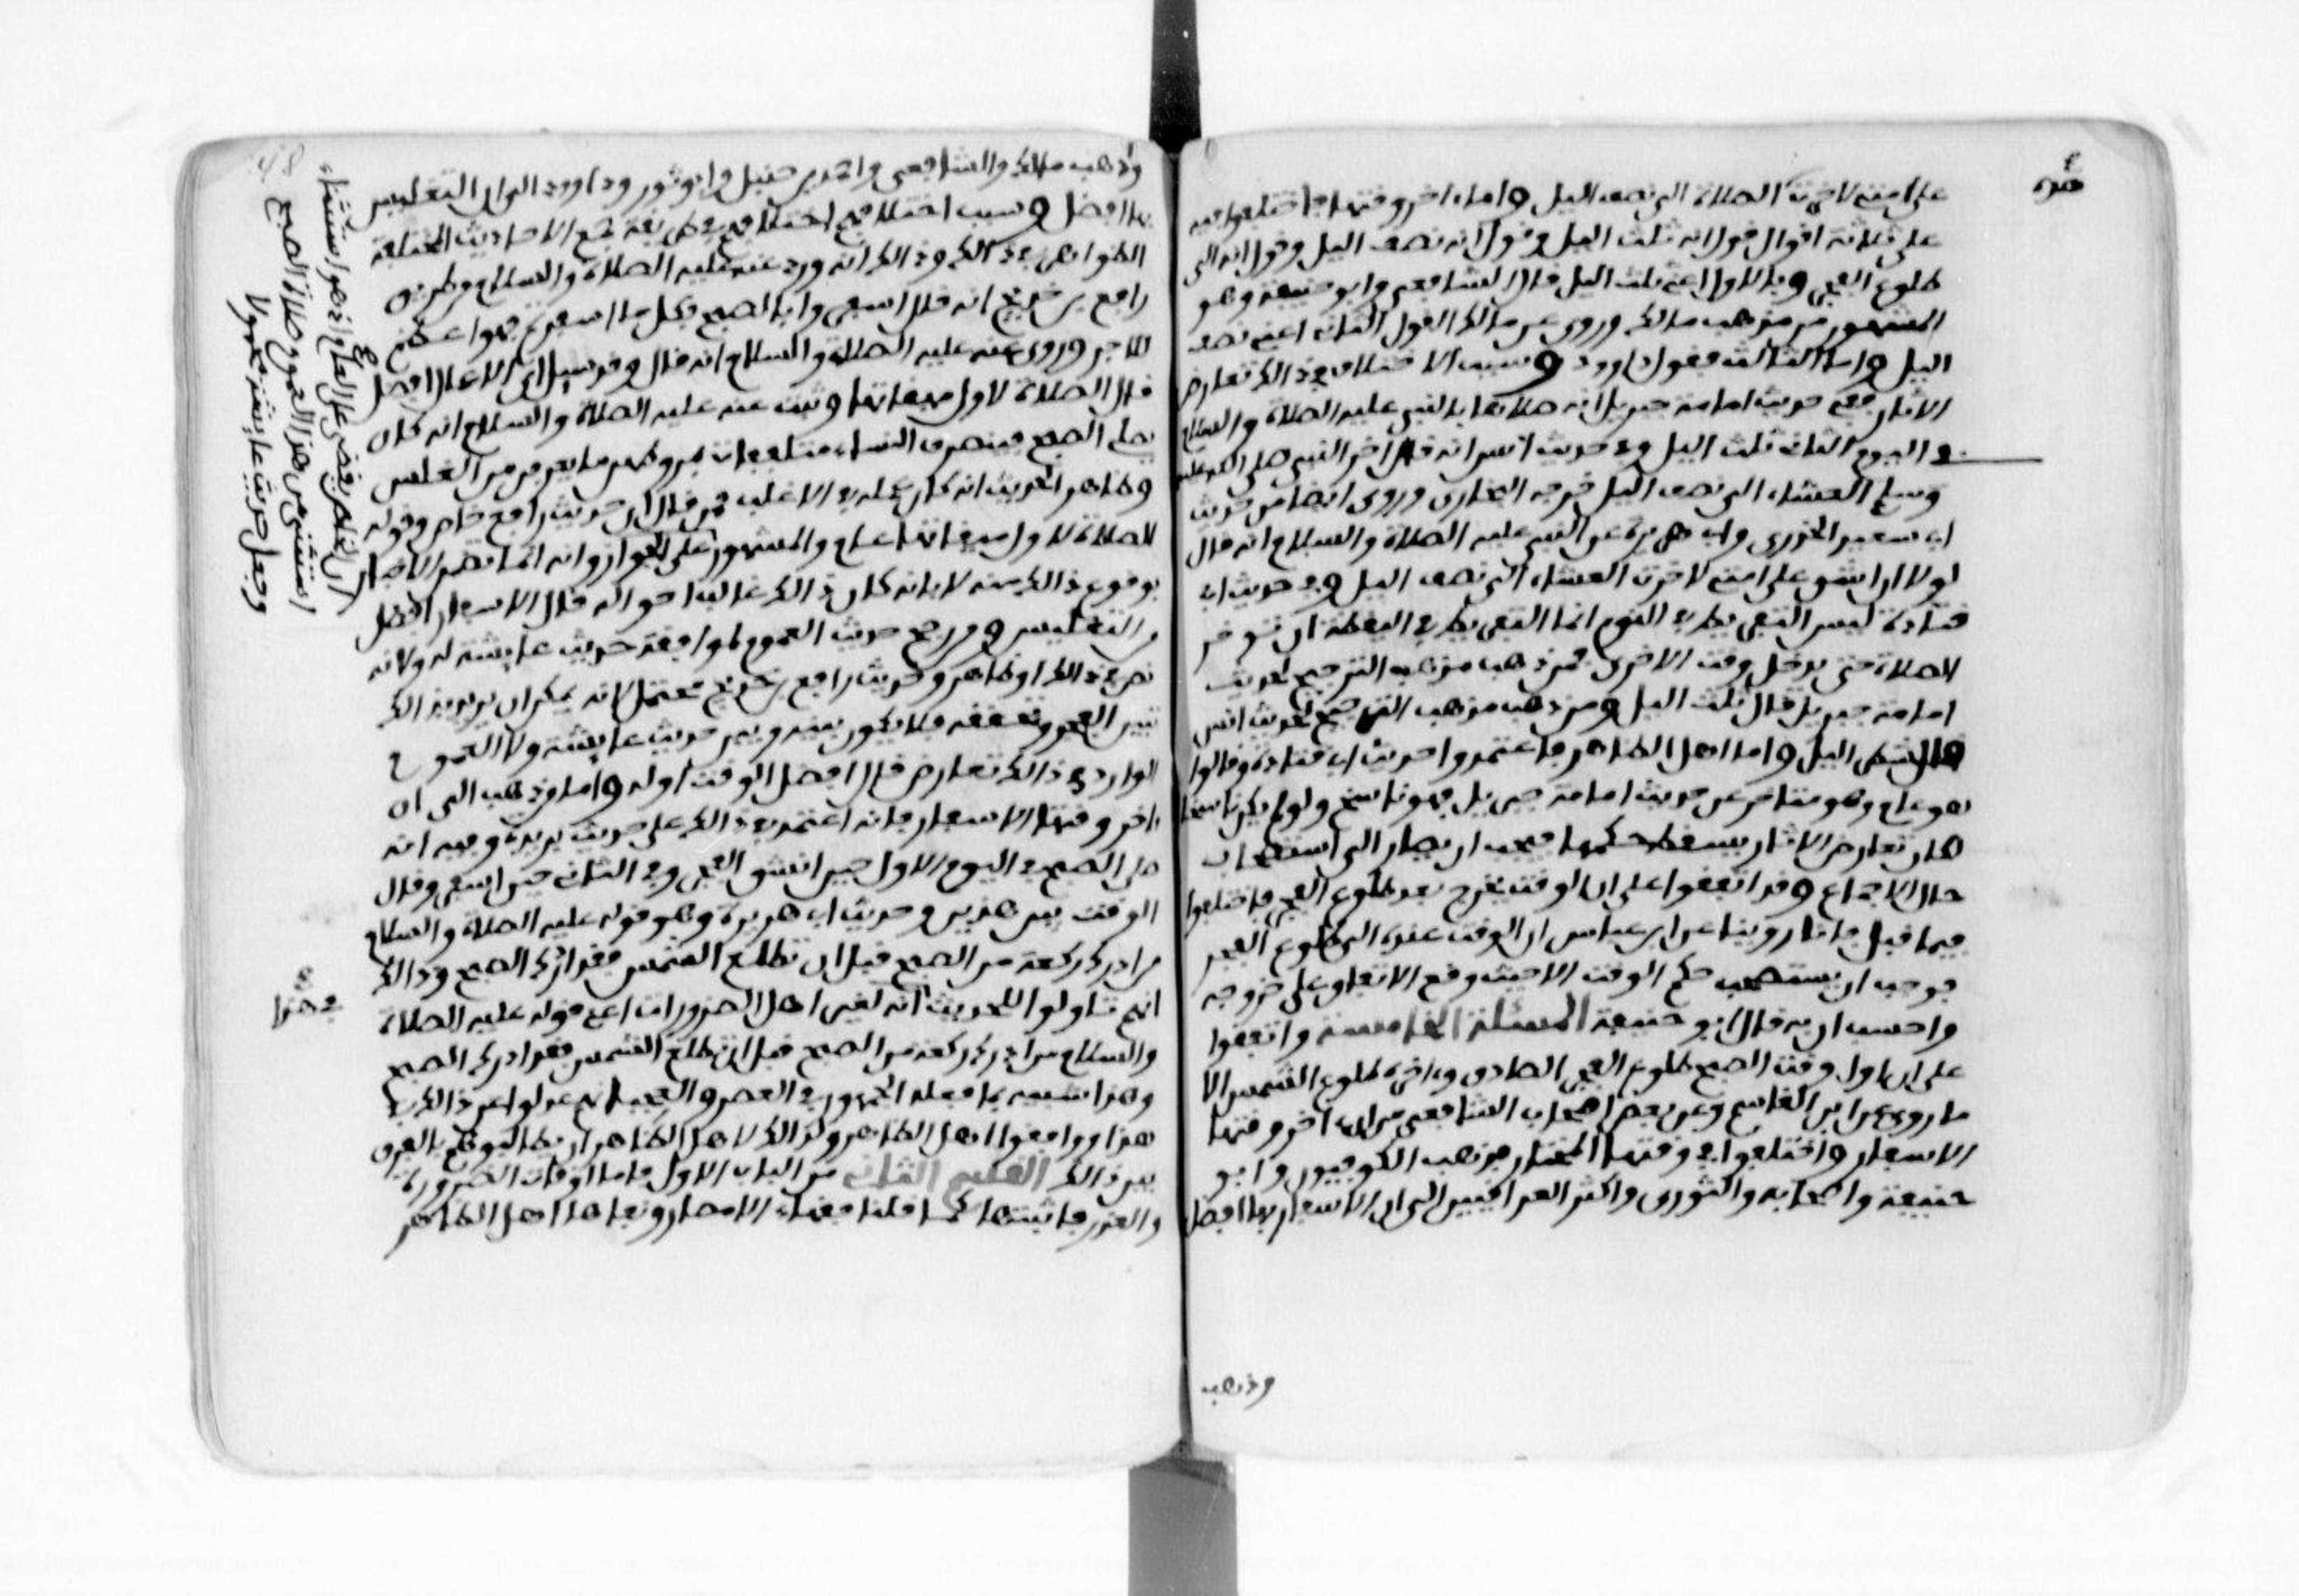 على امتي لاخرت الصلاة الى نصف اليل واما ءاخر وقتها فاختلفوا فيه
على ثلاثة اقوال قول انه ثلث اليل وقول انه نصف اليل وقول انه الى
طلوع الفجر وبالاول اعني ثلث اليل قال الشافعي وابو حنيفة وهو
المشهور من مذهب مالك وروي عن مالك القول الثاني اعني نصف
اليل واما الثالث فقول داوود وسبب الاختلاف في ذالك تعارض
الاثار ففي حديث امامة جبريل انه صلاها بالنبي عليه الصلاة والسلام
في اليوم الثاني ثلث اليل وفي حديث انس انه قال اخر النبي صلى الله عليه
وسلم العشاء الى نصف اليل خرجه البخاري وروي ايضا من حديث
ابي سعيد الخدري وابي هريرة عن النبي عليه الصلاة والسلام انه قال
لولا ان اشق على امتي لاخرت العشاء الى نصف اليل وفي حديث ابي
قتادة ليس التفريط في النوم انما التفريط في اليقظة ان توخر
الصلاة حتى يدخل وقت الاخرى فمن ذهب مذهب الترجيح لحديث
امامة جبريل قال ثلث اليل ومن ذهب مذهب الترجيح لحديث انس
قال شطر اليل واما اهل الظاهر فاعتمدوا حديث ابي قتادة وقالوا
هو عام وهو متاخر عن حديث امامة جبريل فهو ناسخ ولو لم يكن ناسخا
لكان تعارض الاثار يسقط حكمها فيجب ان يصار الى استصحاب
حال الاجماع وقد اتفقوا على ان الوقت يخرج بعد طلوع الفجر فاختلفوا
فيما قبل فانا روينا عن ابن عباس ان الوقت عنده الى طلوع الفجر
فوجب ان يستصحب حكم الوقت الا حيث وقع الاتفاق على خروجه
واحسب ان به قال ابو حنيفة المسئلة الخامسة واتفقوا
على ان اول وقت الصبح طلوع الفجر الصادق وءاخره طلوع الشمس الا
ما روي عن ابن القاسم وعن بعض اصحاب الشافعي من ان ءاخر وقتها
الاسفار واختلفوا في وقتها المختار فذهب الكوفيون وابو
حنيفة واصحابه والثوري واكثر العراقيين الى ان الاسفار بها افضل
وذهب
عنده
وذهب مالك والشافعي واحمد بن حنبل وابو ثور وداوود الى ان التغليس
بها افضل وسبب اختلافهم اختلافهم في طريقة جمع الاحاديث المختلفة
الظواهر في ذالك وذالك انه ورد عنه عليه الصلاة والسلام من طريق
رافع بن خديج انه قال اسفروا بالصبح فكل ما اسفرتم فهو اعظم
للاجر وروي عنه عليه الصلاة والسلام انه قال وقد سيل اي الاعمال افضل
قال الصلاة لاول ميقاتها وثبت عنه عليه الصلاة والسلام انه كان
يصلي الصبح فينصرف النساء متلففات بمروطهن ما يعرفن من الغلس
وظاهر الحديث انه كان عمله في الاغلب فمن قال ان حديث رافع خاص وقوله
الصلاة لاول ميقاتها عام والمشهور ان العام يقضى على الخاص
بوقوع ذالك منه لا بانه كان ذالك غالب احواله قال الاسفار افضل
من التغليس ومن رجح حديث العموم لموافقة حديث عايشة له ولانه
نص في ذالك او ظاهر وحديث رافع بن خديج محتمل لانه يمكن ان يريد بذالك
تبين الفجر وتحققه فلا يكون بينه وبين حديث عايشة ولا العموم
الوارد في ذالك تعارض قال افضل الوقت اوله واما من ذهب الى ان
ءاخر وقتها الاسفار فانه اعتمد في ذالك على حديث بريدة وفيه انه
صلى الصبح في اليوم الاول حين انشق الفجر وفي الثاني حين اسفر وقال
الوقت بين هذين وحديث ابي هريرة وهو قوله عليه الصلاة والسلام
من ادرك ركعة من الصبح قبل ان تطلع الشمس فقد ادرك الصبح وذالك
انهم تاولوا الحديث انه لغير اهل الضرورات اعني قوله عليه الصلاة
والسلام من ادرك ركعة من الصبح قبل ان تطلع الشمس فقد ادرك الصبح
وهذا شبيه بما فعله الجمهور في العصر والعجب انهم عدلوا عن ذالك في
هذا ووافقوا اهل الظاهر ولذالك لاهل الظاهر ان يطالبوهم بالفرق
بين ذالك القسم الثاني من الباب الاول فاما اوقات الضرورة
والعذر فاثبتها كما قلنا فقهاء الامصار ونفاها اهل الظاهر
ان الخاص يقضى على العام اذ هو استثناء
استثنى من هذا العموم صلاة الصبح
وجعل حديث عايشة محمولا
في هذا
48